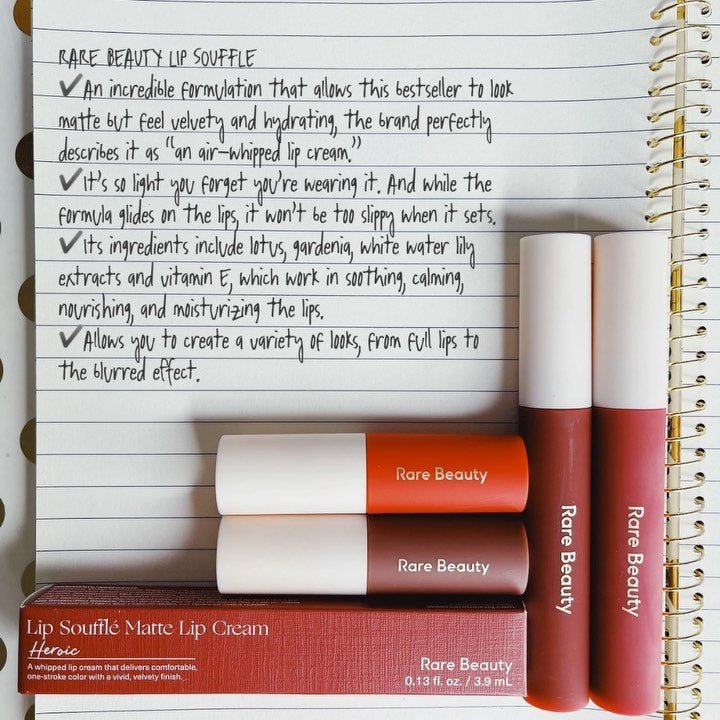 RARE BEAUTY LIP SOUFFLE
✔An incredible formulation that allows this bestseller to look
matte but feel velvety and hydrating, the brand perfectly
describes it as "an air-whipped lip cream."
✔It's so light you forget you're wearing it. And while the
formula glides on the lips, it won't be too slippy when it sets.
✔Its ingredients include lotus, gardenia, white water lily
extracts and vitamin E, which work in soothing, calming,
nourishing, and moisturizing the lips.
✔Allows you to create a variety of looks, from full lips to
the blurred effect.
Rare Beauty
Rare Beauty
Rare Beauty
Rare Beauty
Lip Soufflé Matte Lip Cream
Heroic
A whipped lip cream that delivers comfortable,
one-stroke color with a vivid, velvety finish.
Rare Beauty
0.13 fl. oz. / 3.9 mL